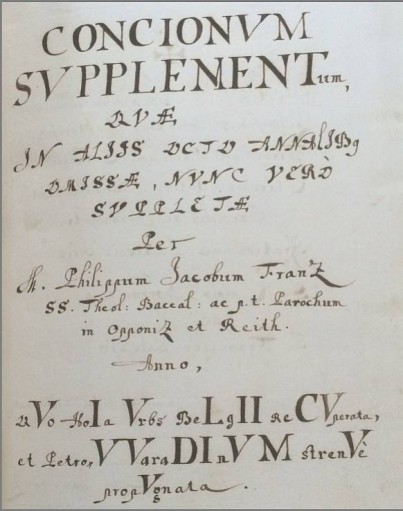 CONCIONVM
SVPPLEMENTum,
QVÆ
IN ALIIS OCTO ANNALIBꝰ
OMISSÆ, NVNC VERÒ
SVPPLETÆ
Per
M. Philippum Jacobum FranZ
SS. Theol: Baccal: ac p.t. Parochum
in OpponiZ et Reith.
Anno,
QVo Vrbs BeLgII ReCVperata,
et PetroVVaraDInVM strenVè
propVgnata.